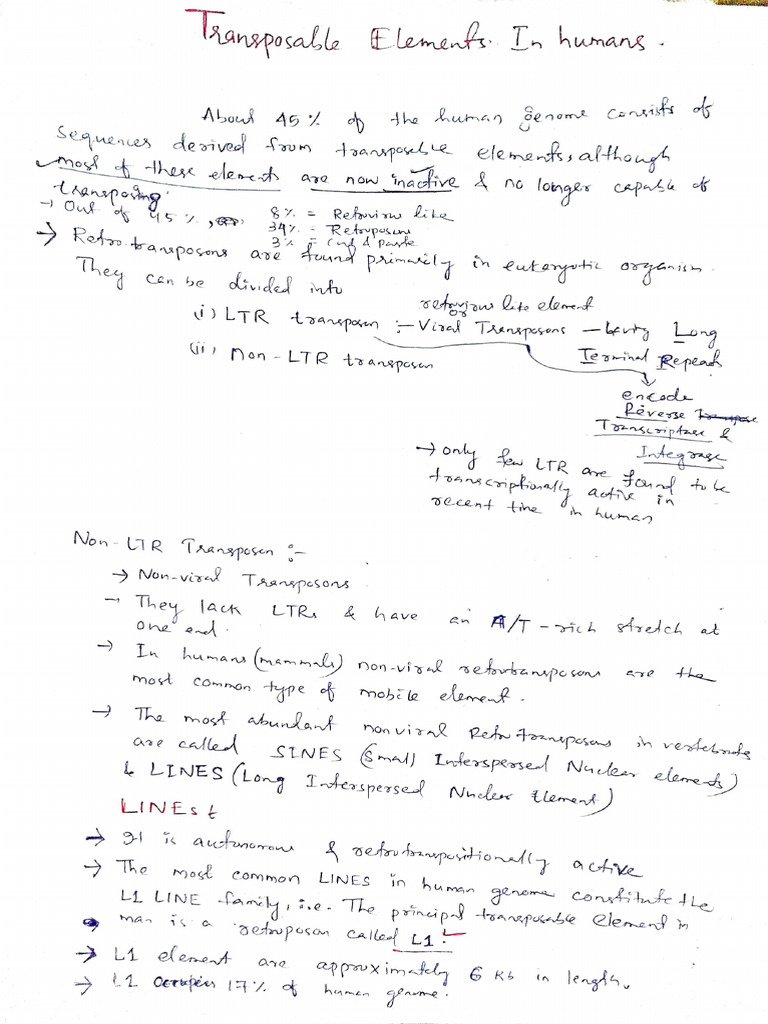 Transposable Elements In humans.
About 45% of the human genome consists of
sequences derived from transposable elements, although
most of these elements are now inactive & no longer capable of
transposing.
→ Out of 45%, 8% = Retrovirus like
34% = Retroposons
3% = Cut & paste
→ Retrotransposons are found primarily in eukaryotic organism.
They can be divided into
retrovirus like element
or
(i) LTR transposon :- Viral Transposons - having Long
Terminal Repeats
(ii) Non-LTR transposon
encode
Reverse
Transcriptase &
Integrase
→ only few LTR are found to be
transcriptionally active in
recent time in human
Non-LTR Transposon :-
→ Non-viral Transposons.
→ They lack LTRs & have an A/T-rich stretch at
one end.
→ In humans (mammals) non-viral retrotransposons are the
most common type of mobile element.
→ The most abundant nonviral Retrotransposons in vertebrates
are called SINES (Small Interspersed Nuclear elements)
& LINES (Long Interspersed Nuclear Element)
LINEs
→ It is autonomous & retrotranspositionally active
→ The most common LINES in human genome constitute the
L1 LINE family, i.e. The principal transposable element in
man is a retroposon called L1.
→ L1 element are approximately 6 Kb in length.
→ L1 occupies 17% of human genome.